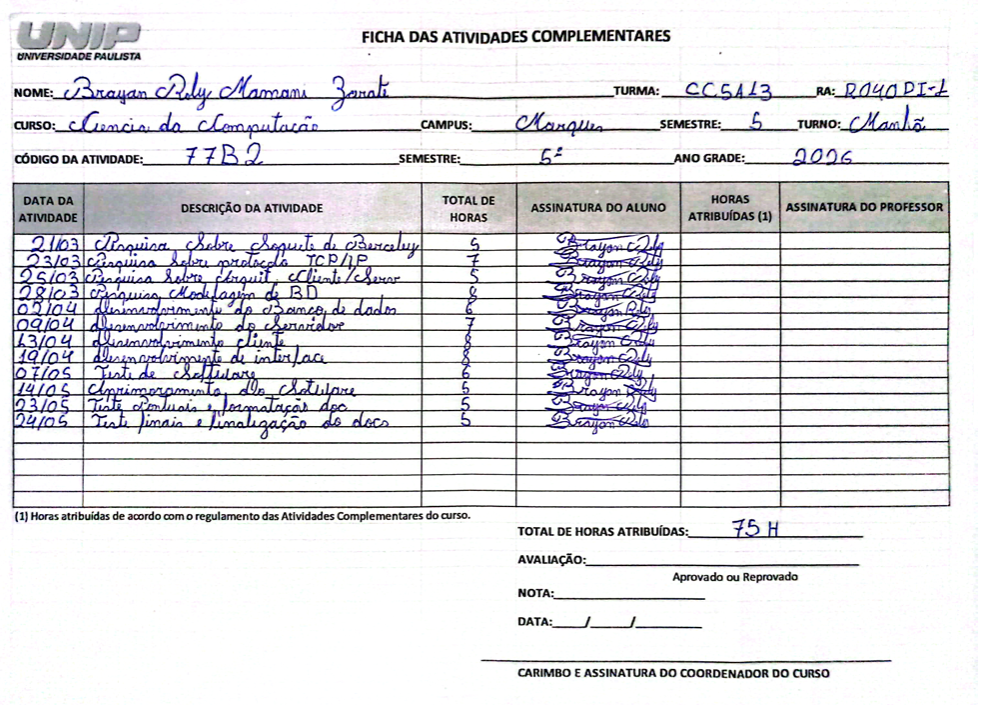 UNIP
UNIVERSIDADE PAULISTA
FICHA DAS ATIVIDADES COMPLEMENTARES
NOME: Brayan Roly Mamani Zarate TURMA: CC5A13 RA: R040DI-1
CURSO: Ciencia da Computação CAMPUS: Marques SEMESTRE: 5 TURNO: Manhã
CÓDIGO DA ATIVIDADE: 77B2 SEMESTRE: 5º ANO GRADE: 2026
DATA DA ATIVIDADE DESCRIÇÃO DA ATIVIDADE TOTAL DE HORAS ASSINATURA DO ALUNO HORAS ATRIBUÍDAS (1) ASSINATURA DO PROFESSOR
21/03 Pesquisa Sobre Soquete de Berceley 5 Brayan Roly
23/03 Pesquisa Sobre protocolo TCP/IP 7 Brayan Roly
25/03 Pesquisa Sobre Arquit. Cliente/Serv 5 Brayan Roly
28/03 Pesquisa Modelagem de BD 8 Brayan Roly
02/04 desenvolvimento do Banco de dados 6 Brayan Roly
09/04 desenvolvimento do Servidor 7 Brayan Roly
13/04 desenvolvimento cliente 8 Brayan Roly
19/04 desenvolvimento de interface 8 Brayan Roly
07/05 Teste de Software 6 Brayan Roly
14/05 Aprimoramento do Software 5 Brayan Roly
23/05 Teste Pontuais e formatação doc 5 Brayan Roly
24/05 Teste finais e finalização do docs 5 Brayan Roly
(1) Horas atribuídas de acordo com o regulamento das Atividades Complementares do curso.
TOTAL DE HORAS ATRIBUÍDAS: 75 H
AVALIAÇÃO:
Aprovado ou Reprovado
NOTA:
DATA: / /
CARIMBO E ASSINATURA DO COORDENADOR DO CURSO